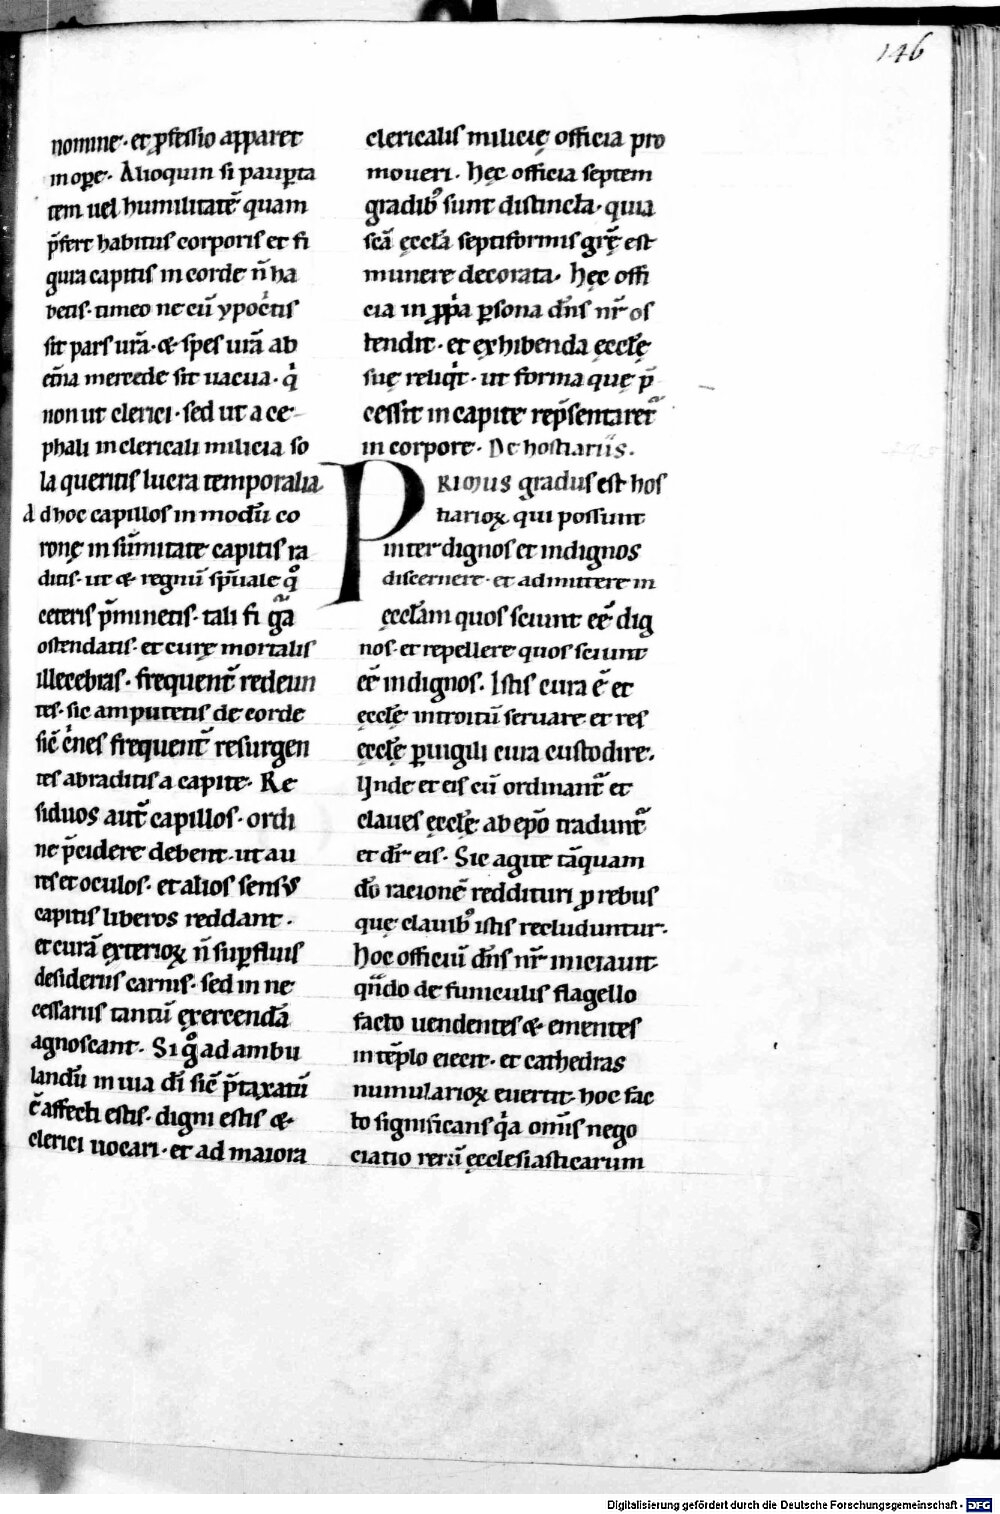 146
nomine· et ꝓfessio apparet
in oꝑe· Alioquin si pauꝑta
tem uel humilitatē quam
p̄fert habitus corporis et fi
gura capitis in corde n̄ ha
betis· timeo ne cū ypocͥtis
sit pars ura᷑· & spes ura᷑ ab
et̄na mercede sit uacua· qͥ
non ut clerici· sed ut a ce
phali in clericali milicia so
la queritis lucra temporalia
Ad hoc capillos in modū co
ronę in sūmitate capitis ra
ditis· ut & regnū sp̄uale qͦ
ceteris p̄minetis· tali fi gᷓa
ostendatis· et curę mortalis
illecebras· frequent̄ redeun
tes· sic amputetis de corde
sic̄ cͥnes frequent̄ resurgen
tes abraditis a capite· Re
siduos aut̄ capillos· ordi
ne p̄cidere debent· ut au
res et oculos· et alios sensus
capitis liberos reddant·
et curā exterioꝝ n̄ suꝑfluis
desideriis carnis· sed in ne
cessariis tantū exercendā
agnoscant· Si gͦ ad ambu
landū in uia dī sic̄ p̄taxatū
ē affecti estis· digni estis &
clerici uocari· et ad maiora
clericalis milicię officia pro
moueri· Hęc officia septem
gradibꝰ sunt distincta· quia
sc̄a ęccl̄a septiformis gr̄ę est
munere decorata· Hęc offi
cia in ꝓpͥa ꝑsona dn̄s nr̄ os
tendit· et exhibenda ęccl̄ę
suę reliqͥt· ut forma quę p̄
cessit in capite rep̄sentaret᷑
in corpore· De hostiariis.
PRIMUS gradus est hos
tiarioꝝ qui possunt
inter dignos et indignos
discernere· et admittere in
ęccl̄am quos sciunt ee̅ dig
nos· et repellere quos sciunt
ee̅ indignos. Istis cura ē et
ęccl̄ę introitū seruare et res
ęccl̄ę ꝑuigili cura custodire.
Unde et eis cū ordinant᷑ et
claues ęccl̄ę ab ep̄o tradunt᷑
et dr̄ eis· Sic agite tāquam
dō racionē reddituri ꝓ rebus
quę clauibꝰ istis recluduntur·
Hoc officiū dn̄s nr̄ iniciauit
qn̄do de funiculis flagello
facto uendentes & ementes
in tēplo eiecit· et cathedras
numularioꝝ euertit· hoc fac
to significans qͥa om̄is nego
ciatio rerū ęcclesiasticarum
Digitalisierung gefördert durch die Deutsche Forschungsgemeinschaft - DFG